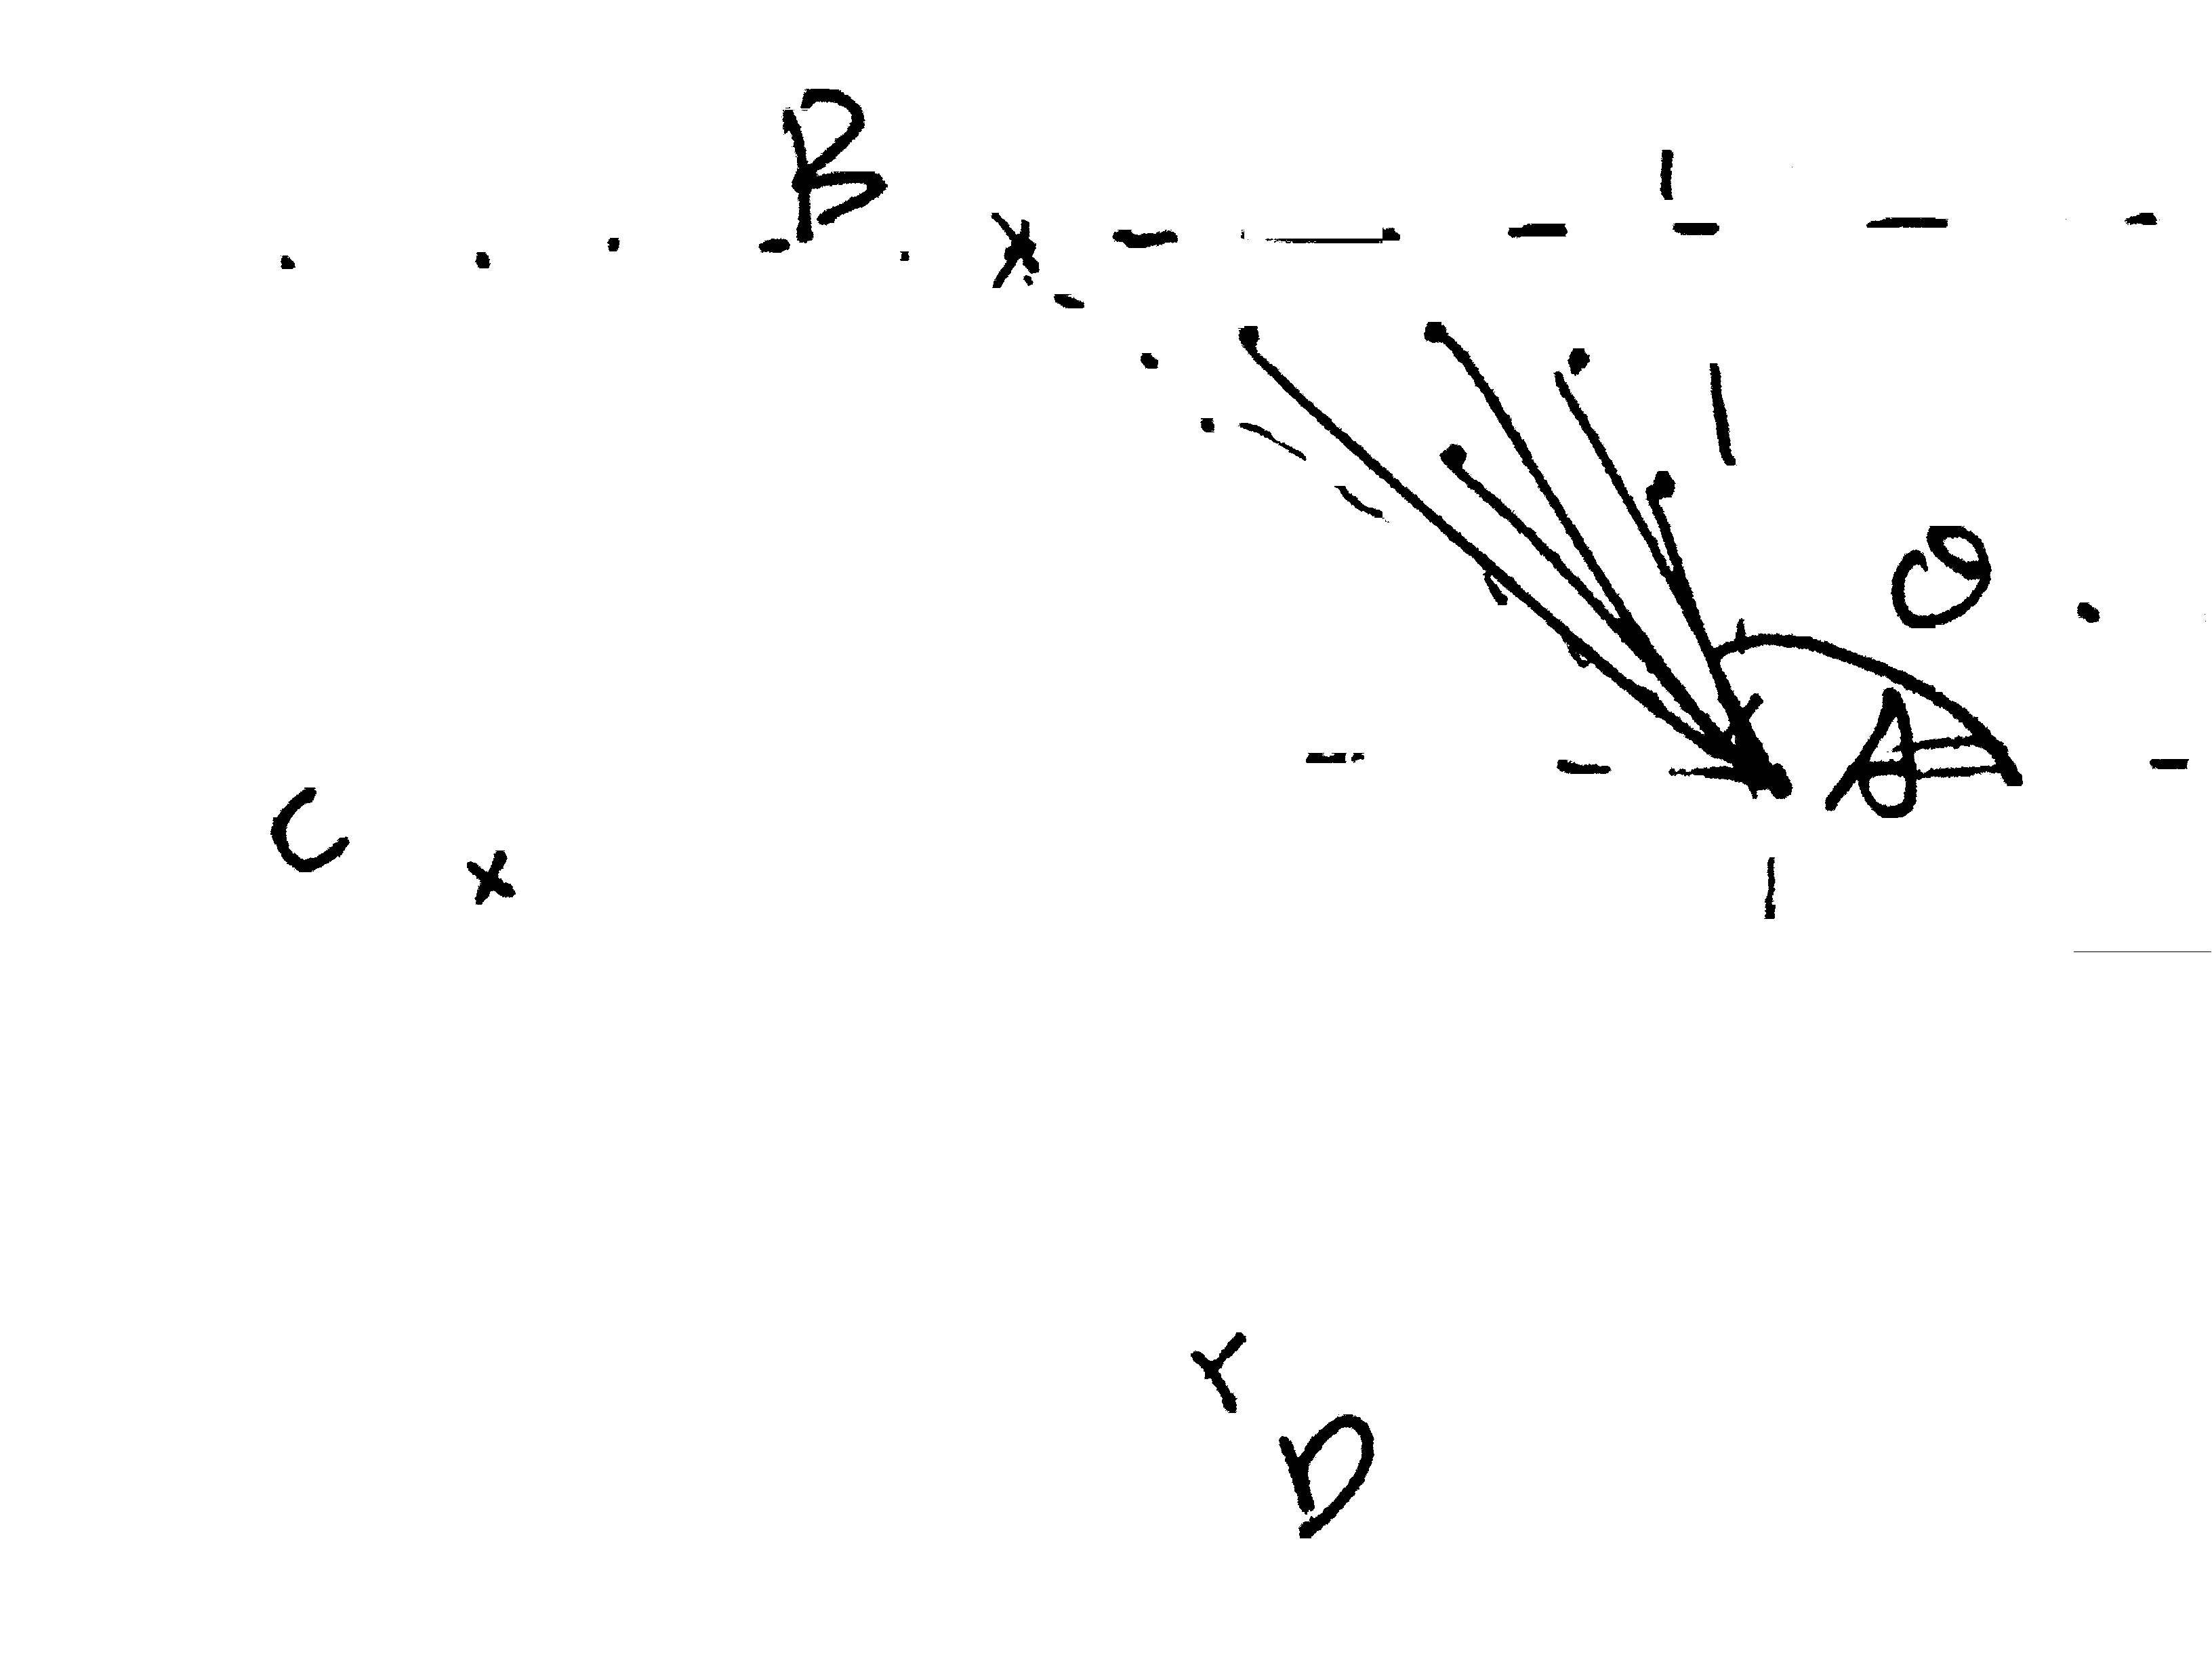 B
A
C
D